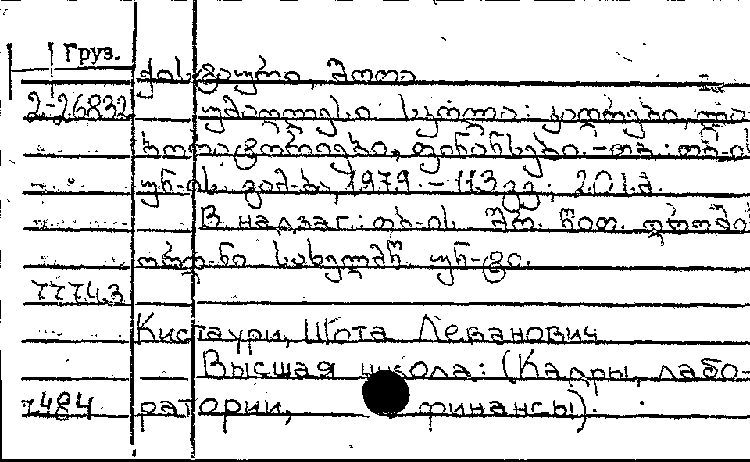 Груз.
ქისტაური, შოთა
2-26832 უმაღლესი სკოლა: კადრები, ლა-
ბორატორიები, ფინანსები. – თბ.: თბ-ის
უნ-ის გამ-ბა, 1979. – 113 გვ.; 20 სმ.
В надзаг.: თბ-ის შრ. წით. დროში
ორდ-ნი სახელმწ. უნ-ტი.
77743
Кистаури, Шота Леванович
Высшая школа: (Кадры, лабо-
7484 ратории, финансы).